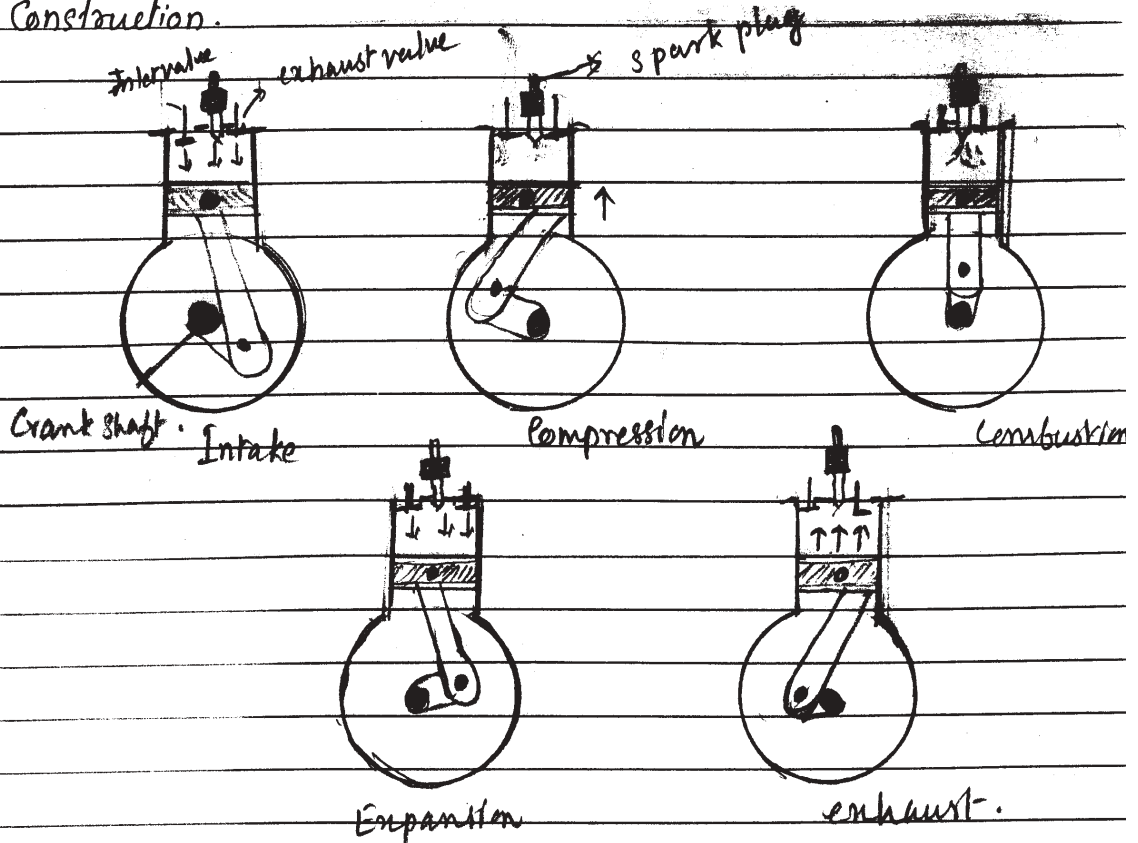 Construction.
Intervalve
exhaust valve
spark plug
Crank shaft.
Intake
Compression
Combustion
Expansion
exhaust.